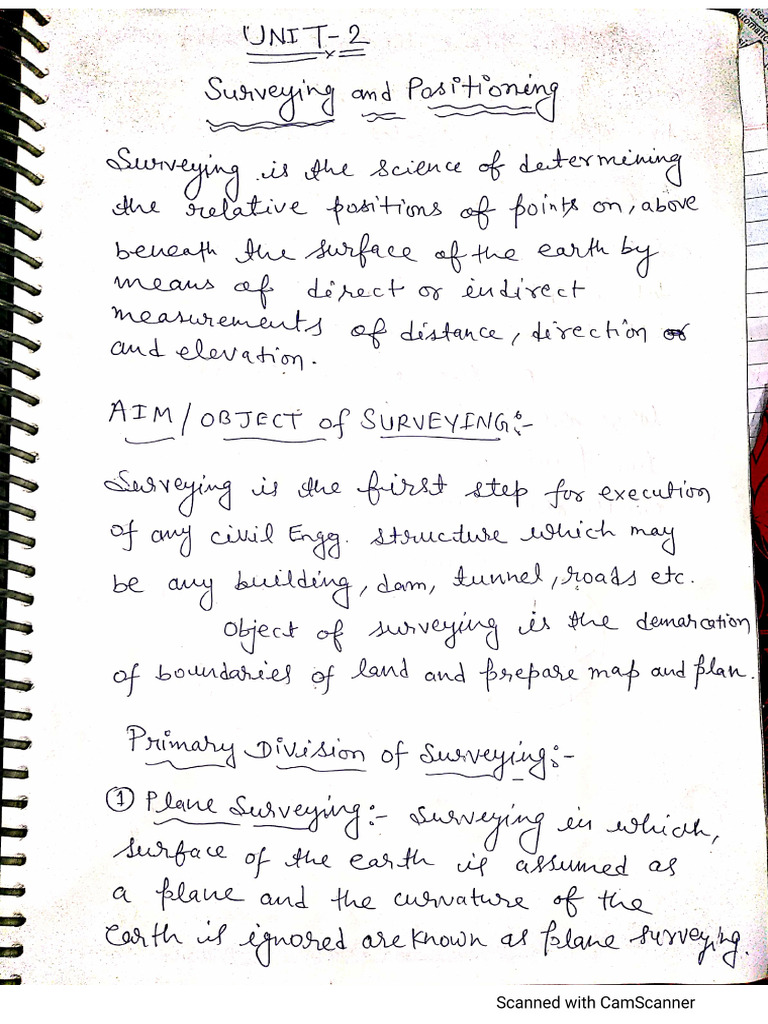 UNIT-2
Surveying and Positioning
Surveying is the science of determining
the relative positions of points on, above
beneath the surface of the earth by
means of direct or indirect
measurements of distance, direction
and elevation.
AIM/OBJECT of SURVEYING:-
Surveying is the first step for execution
of any civil Engg. structure which may
be any building, dam, tunnel, roads etc.
Object of surveying is the demarcation
of boundaries of land and prepare map and plan.
Primary Division of Surveying:-
① Plane Surveying:- Surveying in which,
surface of the earth is assumed as
a plane and the curvature of the
Earth is ignored are known as plane surveying.
Scanned with CamScanner